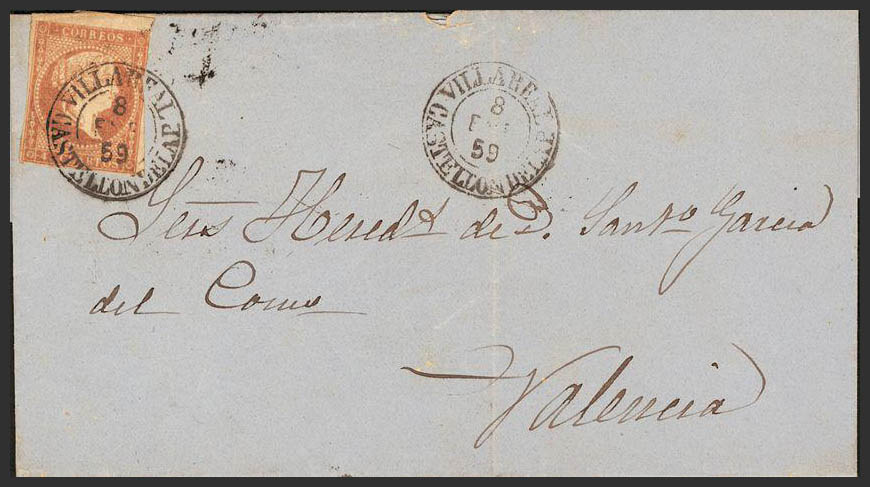 CORREOS
VILLAREAL
8
59
CASTELLON DE LA P.
VILLAREAL
8
59
CASTELLON DE LA P.
Hereds de D. Santo Garcia
del
Valencia